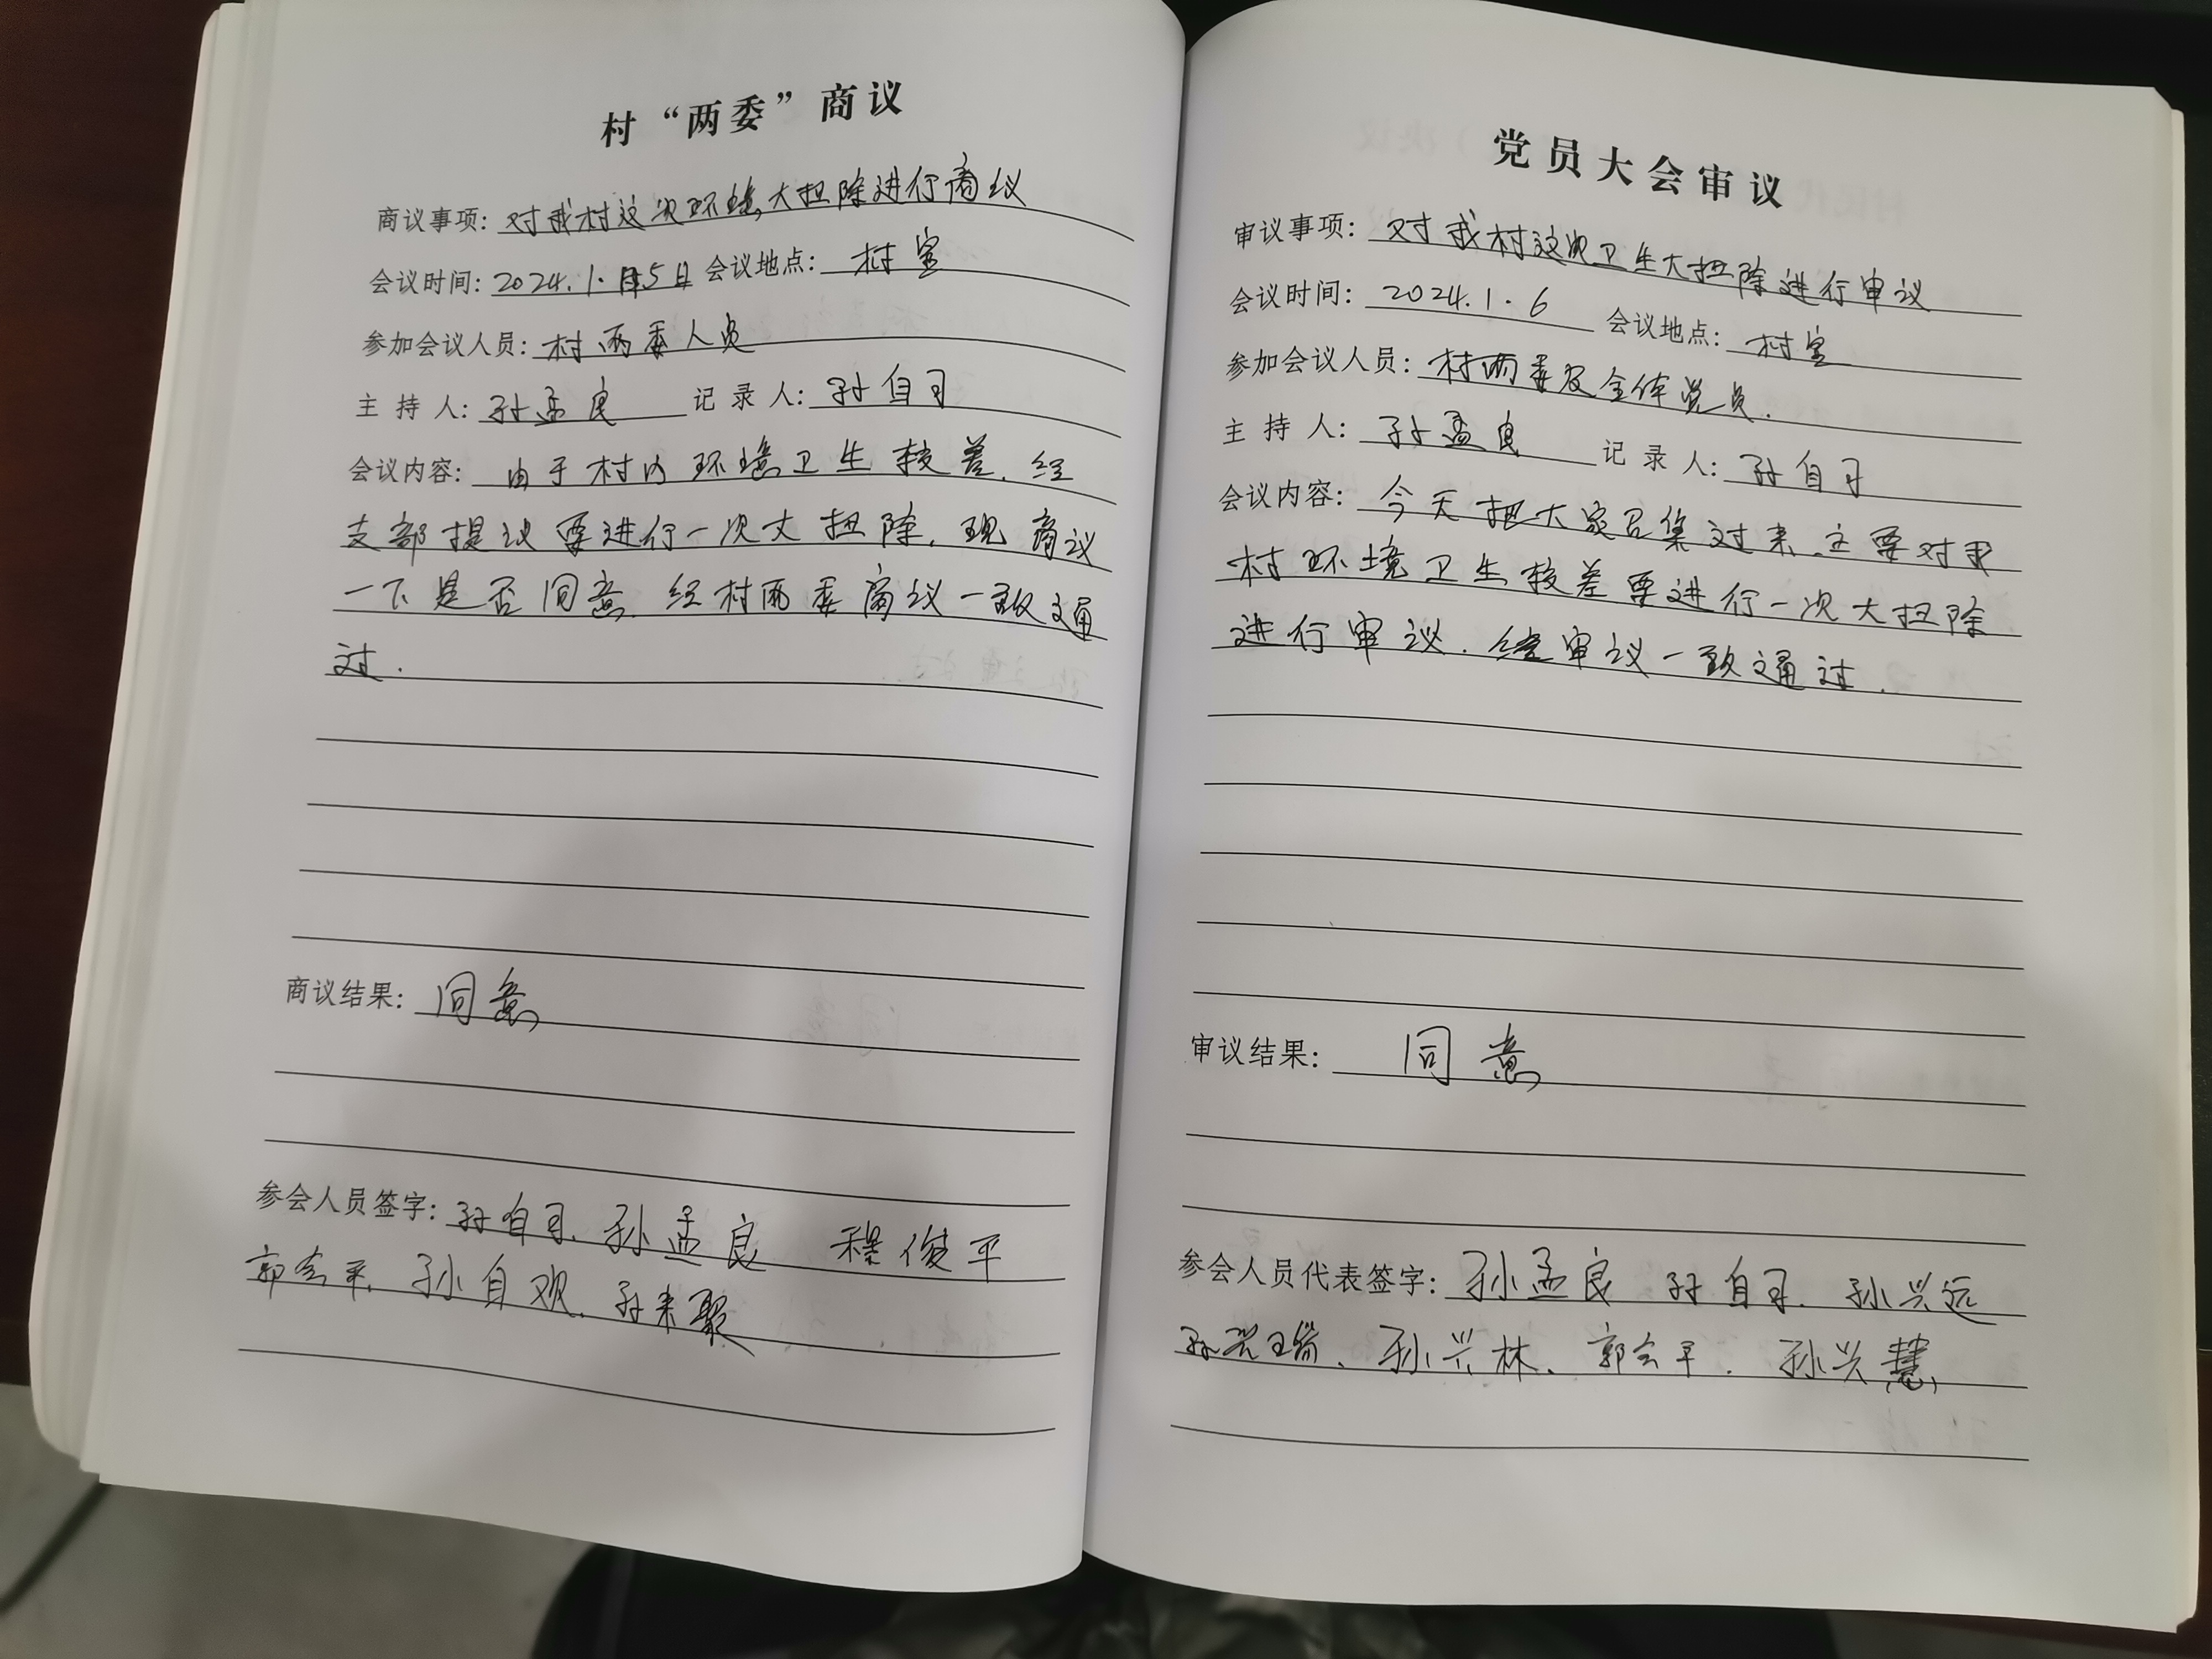 村“两委”商议
商议事项: 对我村这次环境大扫除进行商议
会议时间: 2024.1.5日 会议地点: 村室
参加会议人员: 村两委人员
主持人: 孙孟良 记录人: 孙自习
会议内容: 由于村内环境卫生较差.经
支部提议要进行一次大扫除.现商议
一下是否同意.经村两委商议一致通
过.
商议结果: 同意
参会人员签字: 孙自习.孙孟良 穆俊平
郭会平.孙自欢.孙来聚
党员大会审议
审议事项: 对我村这次卫生大扫除进行审议
会议时间: 2024.1.6 会议地点: 村室
参加会议人员: 村两委及全体党员.
主持人: 孙孟良 记录人: 孙自习
会议内容: 今天把大家召集过来.主要对我
村环境卫生较差要进行一次大扫除
进行审议.经审议一致通过.
审议结果: 同意
参会人员代表签字: 孙孟良 孙自习.孙兴远
孙兴瑞、孙兴林、郭会平.孙兴慧